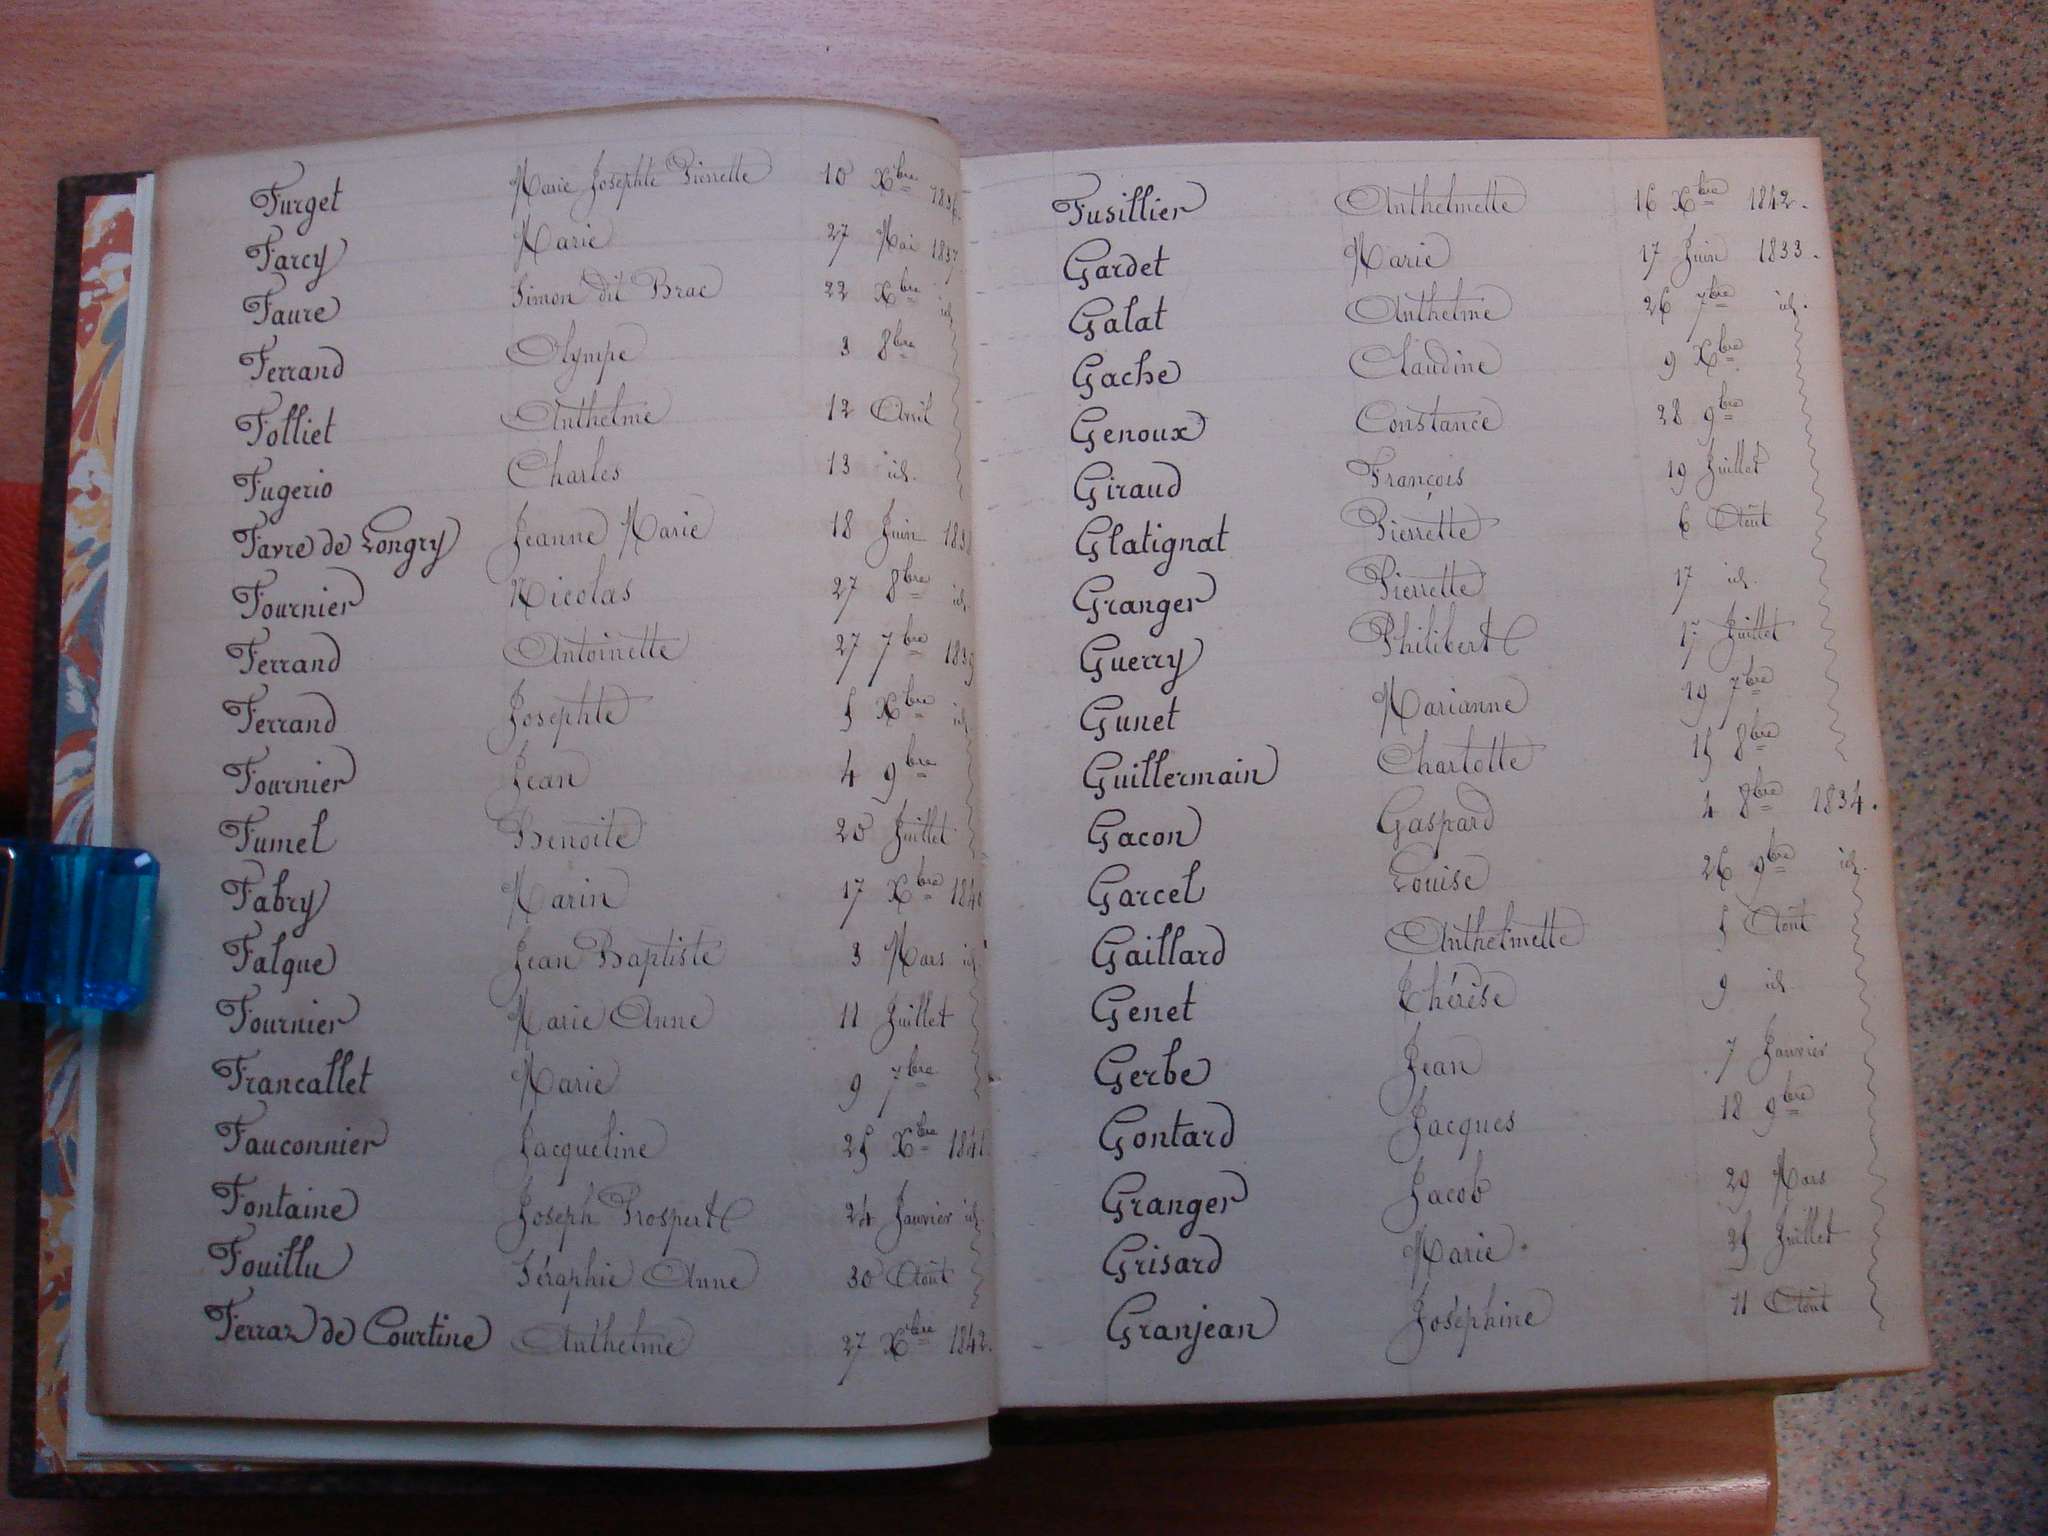 Furget Marie Josephte Pierrette 10 Xbre 1836.
Farcy Marie 27 Mai 1837
Faure Simon dit Brac 22 Xbre id.
Ferrand Olympe 3 8bre
Folliet Anthelme 12 Avril
Fugerio Charles 13 id.
Favre de Longry Jeanne Marie 18 Juin 1838
Fournier Nicolas 27 8bre id.
Ferrand Antoinette 27 7bre 1839
Ferrand Josephte 5 Xbre id.
Fournier Jean 4 9bre
Fumel Benoite 20 Juillet
Fabry Marin 17 Xbre 1840
Falque Jean Baptiste 3 Mars id.
Fournier Marie Anne 11 Juillet
Francallet Marie 9 7bre
Fauconnier Jacqueline 25 Xbre 1841
Fontaine Joseph Prospert 24 Janvier id.
Fouillu Séraphie Anne 30 Août
Ferraz de Courtine Anthelme 27 Xbre 1842.
Fusillier Anthelmette 16 Xbre 1842.
Gardet Marie 17 Juin 1833.
Galat Anthelme 26 7bre id.
Gache Claudine 9 Xbre
Genoux Constance 28 9bre
Giraud François 19 Juillet
Glatignat Pierrette 6 Août
Granger Pierrette 17 id.
Guerry Philibert 17 Juillet
Gunet Marianne 19 7bre
Guillermain Charlotte 15 8bre
Gacon Gaspard 4 8bre 1834.
Garcel Louise 26 9bre id.
Gaillard Anthelmette 5 Août
Genet Thérèse 9 id.
Gerbe Jean 7 Janvier
Gontard Jacques 18 9bre
Granger Jacob 29 Mars
Grisard Marie 25 Juillet
Granjean Joséphine 11 Août